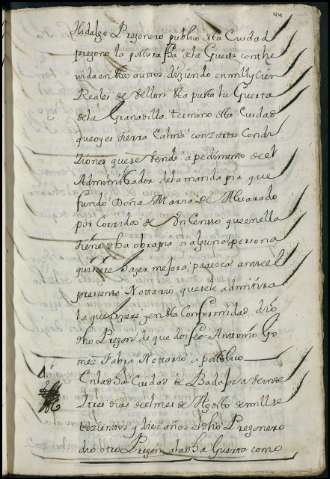 Hidalgo Pregonero publico desta Ciudad
pregono la postura fha a la Guerta conthe
nida en dhos autos diziendo en mill y cien
Reales de Vellon esta puesta la Guerta
de la Granadilla termino desta Ciudad
que oy es tierra Calma con
ziones que se vende a pedimento de el
Administrador de la manda pia que
fundo Doña Maria de Alvarado
por Corridos de Un Censo que en ella
tiene dha obra pia si alguna persona
quisiere hazer mejora paresca ante el
presente Nottario que se le admitira
la que hiziere y en esta Conformidad dio
dho Pregon de que doi fee Antonio Go
mes Notario a publico
En la dha Ciudad de Badajoz a
tres dias de el mes de Agosto de mill se
tezientos y tres años el dho Pregonero
dio otro Pregon a la dha Guerta como